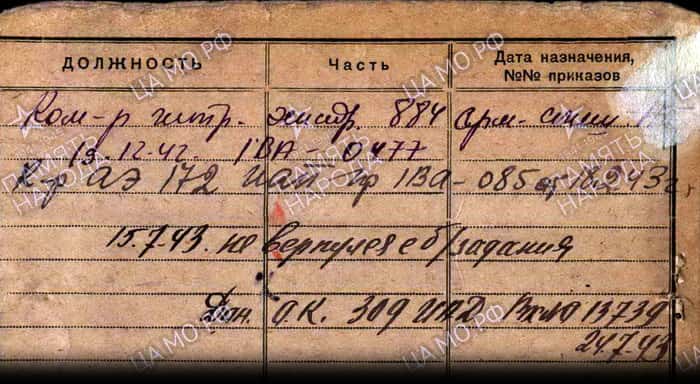 ДОЛЖНОСТЬ Часть Дата назначения, №№ приказов
Ком-р 884
19.12.42. 1ВА - 0477
К-р АЭ 172 ИАП пр 1ВА - 085 от
15.7.43. не вернулся с б/задания
Дон. О.К. 309 ИАД Вх№ 13739
24.7.43
ЦА МО РФ
ПАМЯТЬ НАРОДА